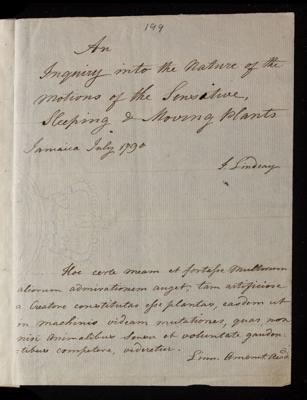 199
An
Inquiry into the Nature of the
Motions of the Sensitive,
Sleeping & Moving Plants
Jamaica July 1790
J. Lindsay
Hoc certe meam et fortasse multorum
aliorum admirationem auget, tam artificiose
a Creatore constitutas esse plantas, easdem ut
in machinis videam mutationes, quas non
nisi Animalibus sensu et voluntate gauden
tibus competere, videretur.
Linn. Amoenit. Acad.